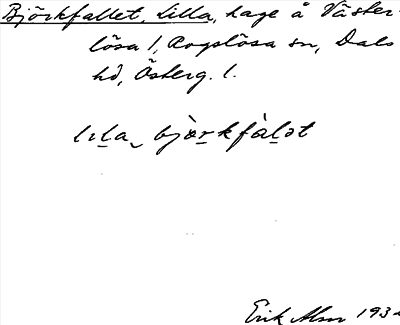 Björkfallet, Lilla, hage å Väster-
lösa 1, Rogslösa sn, Dals
hd, Österg. l.
lɩla bjòrkfàlət
Erik Alm 193